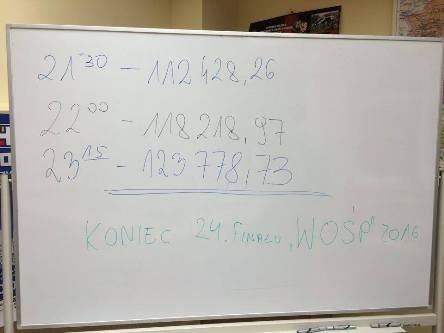 21³⁰ - 112 428,26
22⁰⁰ - 118 218,97
23¹⁵ - 123 778,73
KONIEC 24. FINAŁU „WOŚP" 2016